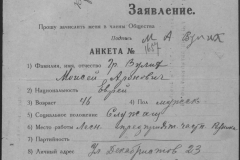 Заявление.
Прошу зачислить меня в члены Общества
Подпись М А Вулих
АНКЕТА №
1) Фамилия, имя, отчество Гр. Вулих
Моисей Аронович
2) Национальность Еврей
3) Возраст 46 4) Пол мужск
5) Социальное положение Служащ
6) Место работы Лесн.
7) Партийность
8) Личный адрес Ул Декабристов 23